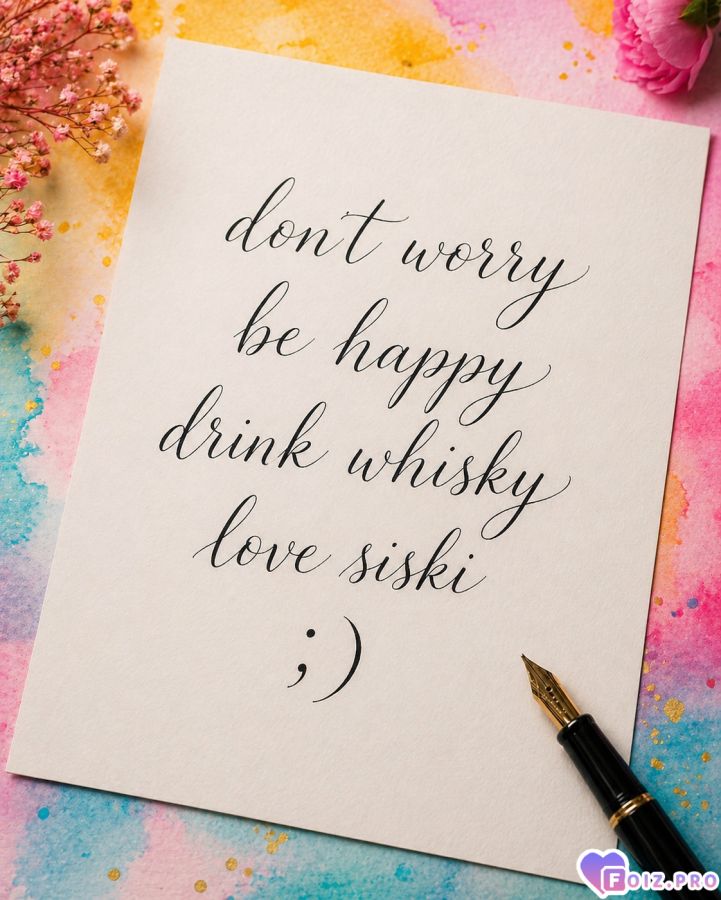 don't worry
be happy
drink whisky
love siski
;)
FOIZ.PRO